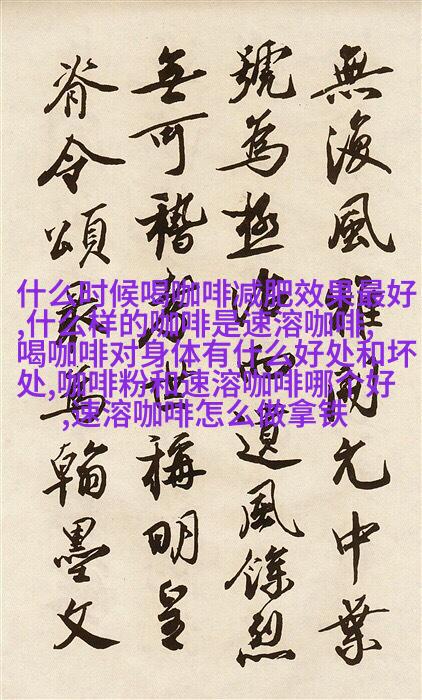 無復風雅開元中葉
號為極治遺風餘烈
無可稽考世稱明皇
脊令頌最為翰墨文
什么时候喝咖啡减肥效果最好
,什么样的咖啡是速溶咖啡,
喝咖啡对身体有什么好处和坏
处,咖啡粉和速溶咖啡哪个好
,速溶咖啡怎么做拿铁